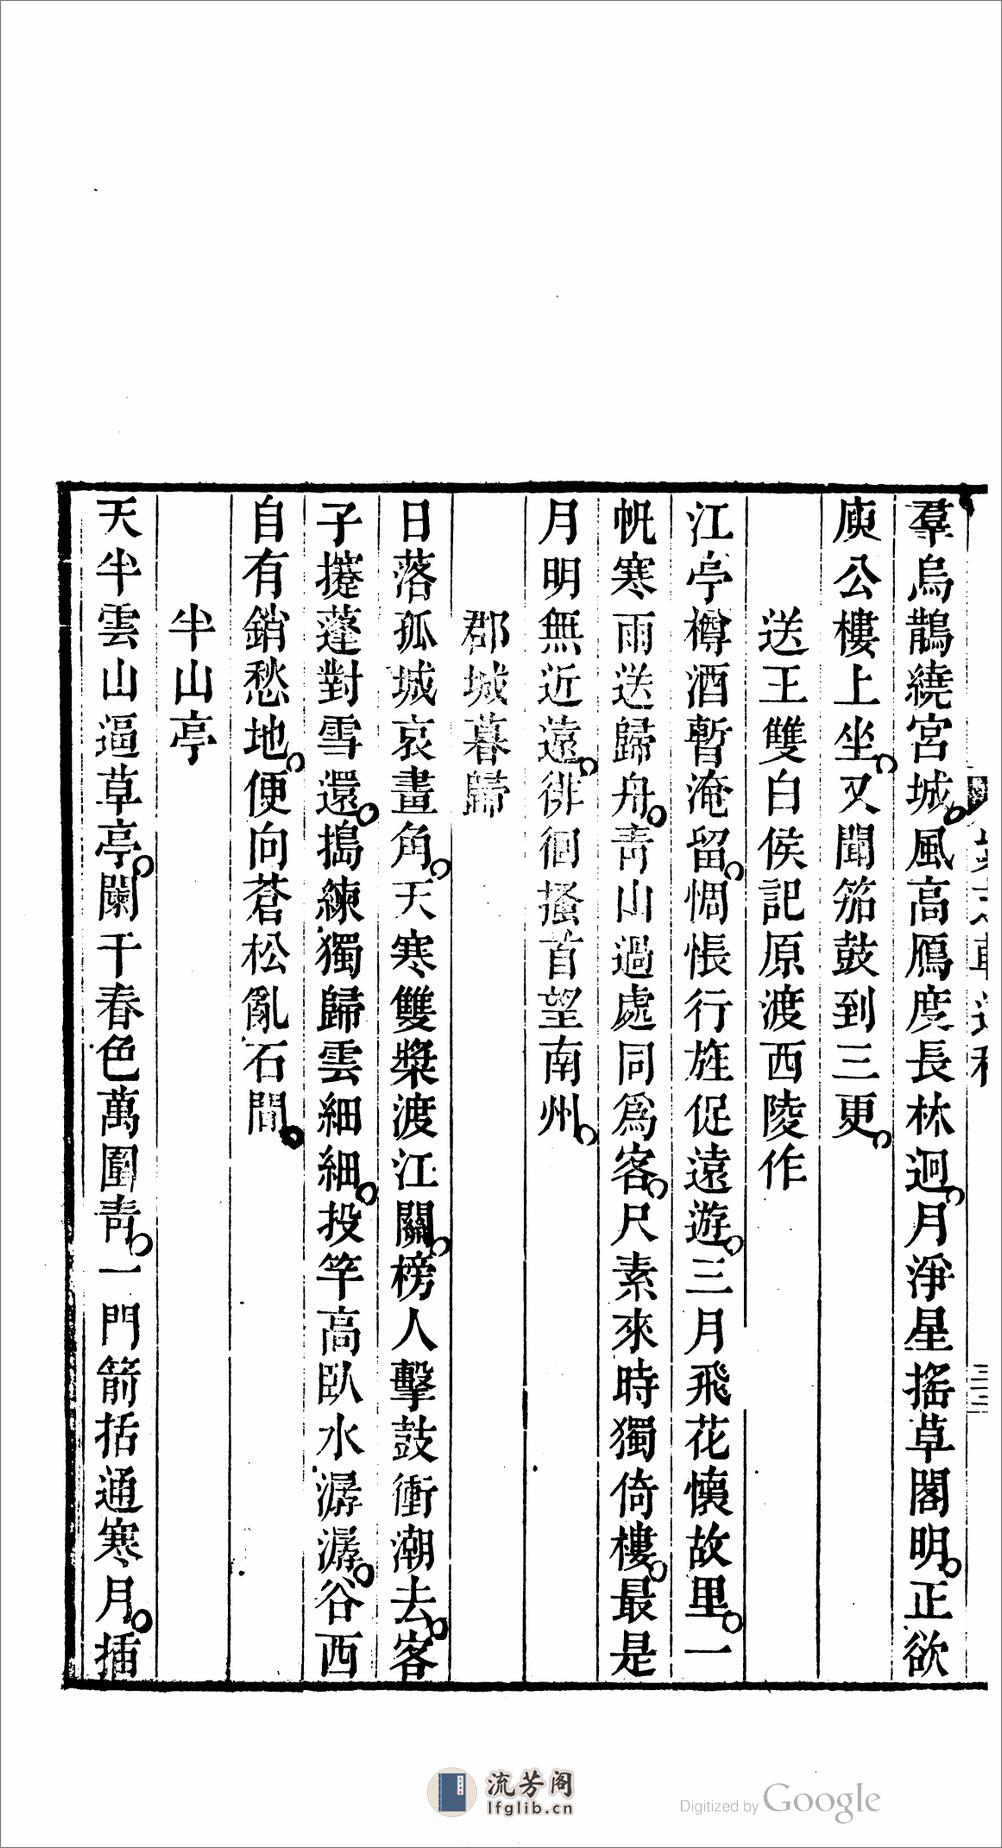 羣烏鵲繞宮城風高鴈度長林迥月淨星搖草閣明正欲
庾公樓上坐又聞笳鼓到三更
送王雙白侯記原渡西陵作
江亭樽酒暫淹留惆悵行旌促遠遊三月飛花懷故里一
帆寒雨送歸舟靑山過處同爲客尺素來時獨倚樓最是
月明無近遠徘徊搔首望南州
郡城暮歸
日落孤城哀畫角天寒雙槳渡江關榜人擊鼓衝潮去客
子擁蓬對雪還搗練獨歸雲細細投竿高臥水潺潺谷西
自有銷愁地便向蒼松亂石間
半山亭
天半雲山逼草亭闌干春色萬圍靑一門箭括通寒月插
三三
流芳阁
lfglib.cn
Digitized by Google